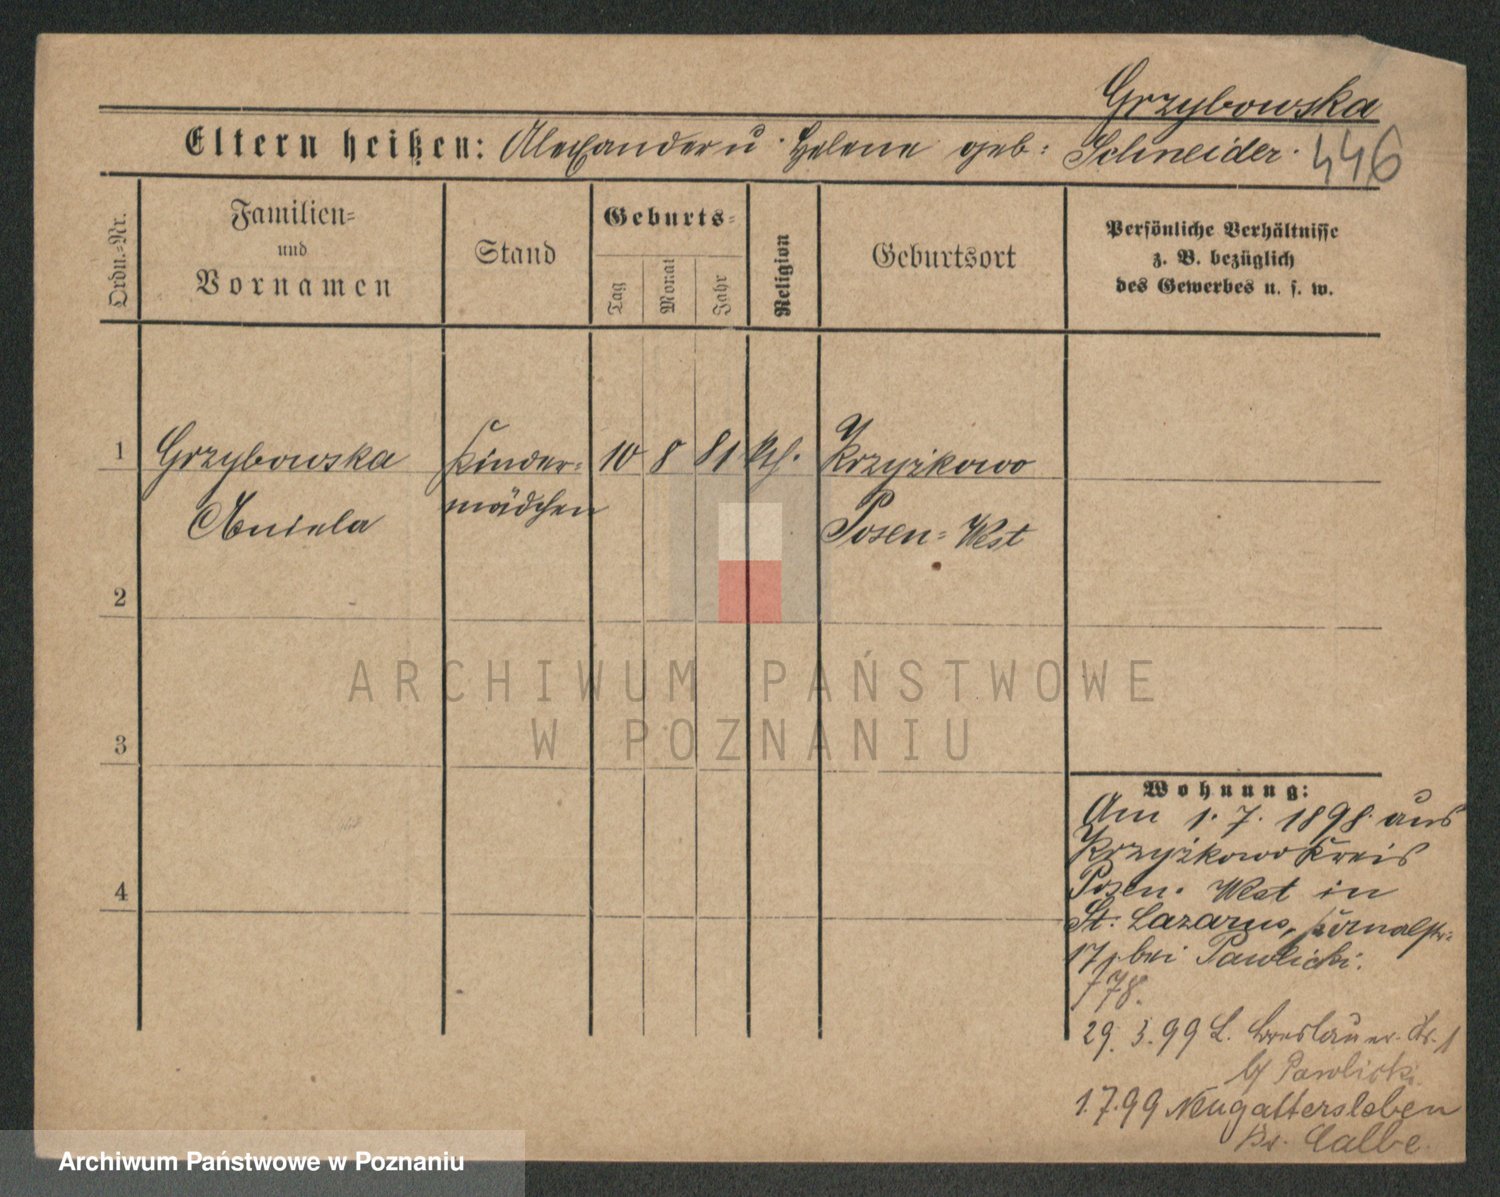 Grzybowska
Eltern heißen: Alexander u. Helene geb: Schneider. 446
Ordn.=Nr.
Familien=
und
Vornamen
Stand
Geburts=
Tag
Monat
Jahr
Religion
Geburtsort
Persönliche Verhältnisse
z. B. bezüglich
des Gewerbes u. s. w.
1 Grzybowska Kinder= 10 8 81 kth. Krzyżkowo
Aniela mädchen Posen=West
2
3
4
Wohnung:
Am 1. 7. 1898 aus
Krzyżkowo Kreis
Posen. West in
St: Lazarus,
17, bei Pawlicki.
f 78.
29. 3. 99 L. Breslauer. Str. 1
b/ Pawlicki.
1.7.99 Neugattersleben
Kr. Calbe.
ARCHIWUM PAŃSTWOWE
W POZNANIU
Archiwum Państwowe w Poznaniu